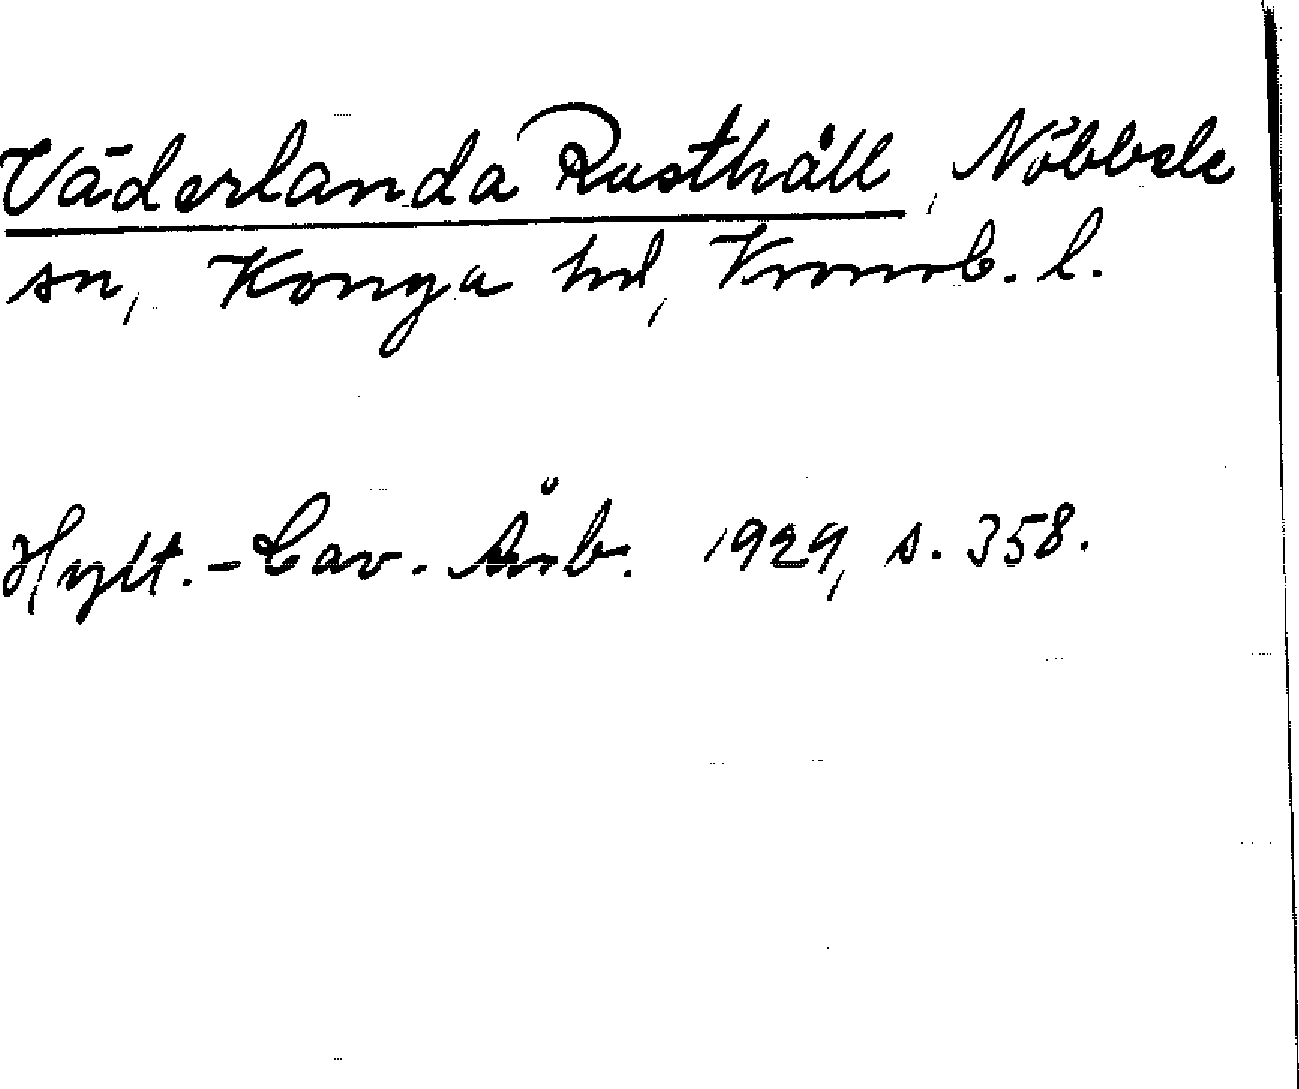 Väderlanda Rusthåll, Nöbbele
sn, Konga hd, Kronob. l.
Hylt.-Cav. Årsb. 1929, s. 358.